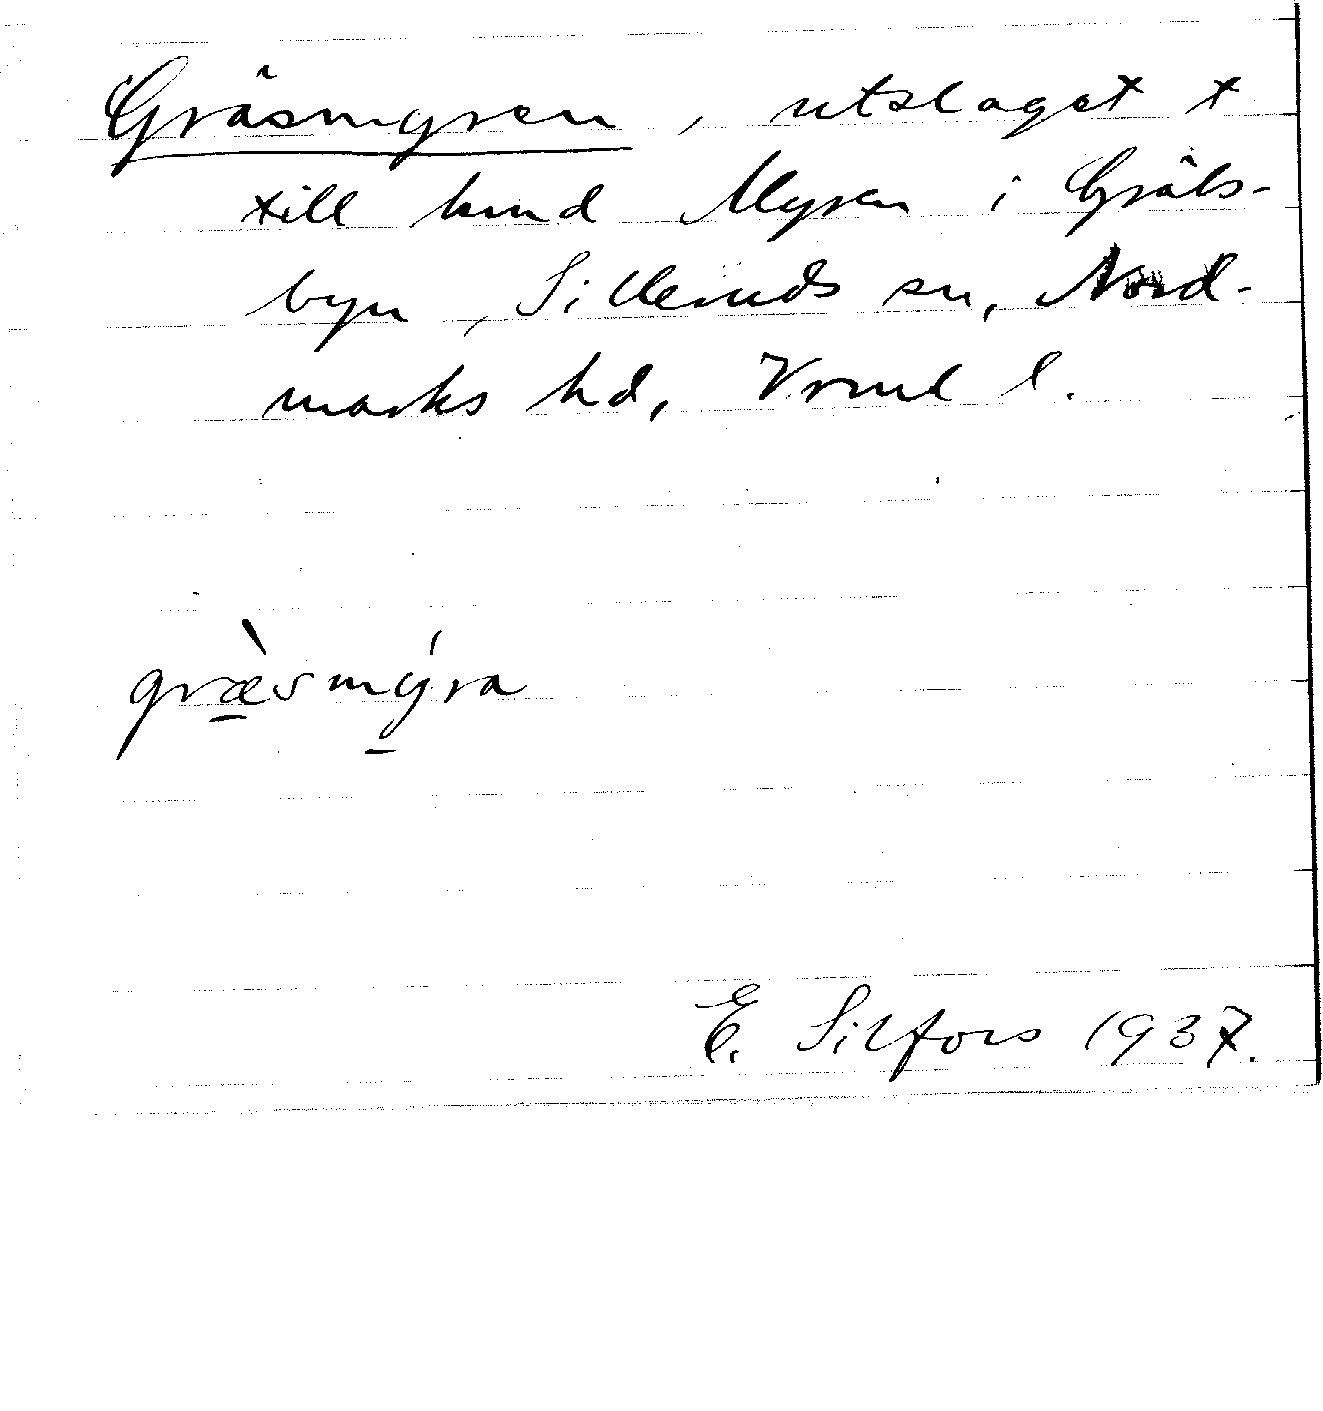 Gräsmyren, utslaget t
till hmd Myren i Gräs-
byn, Silleruds sn, Nord-
marks hd, Vrml l.
græ̀smýra
E. Silfors 1937.